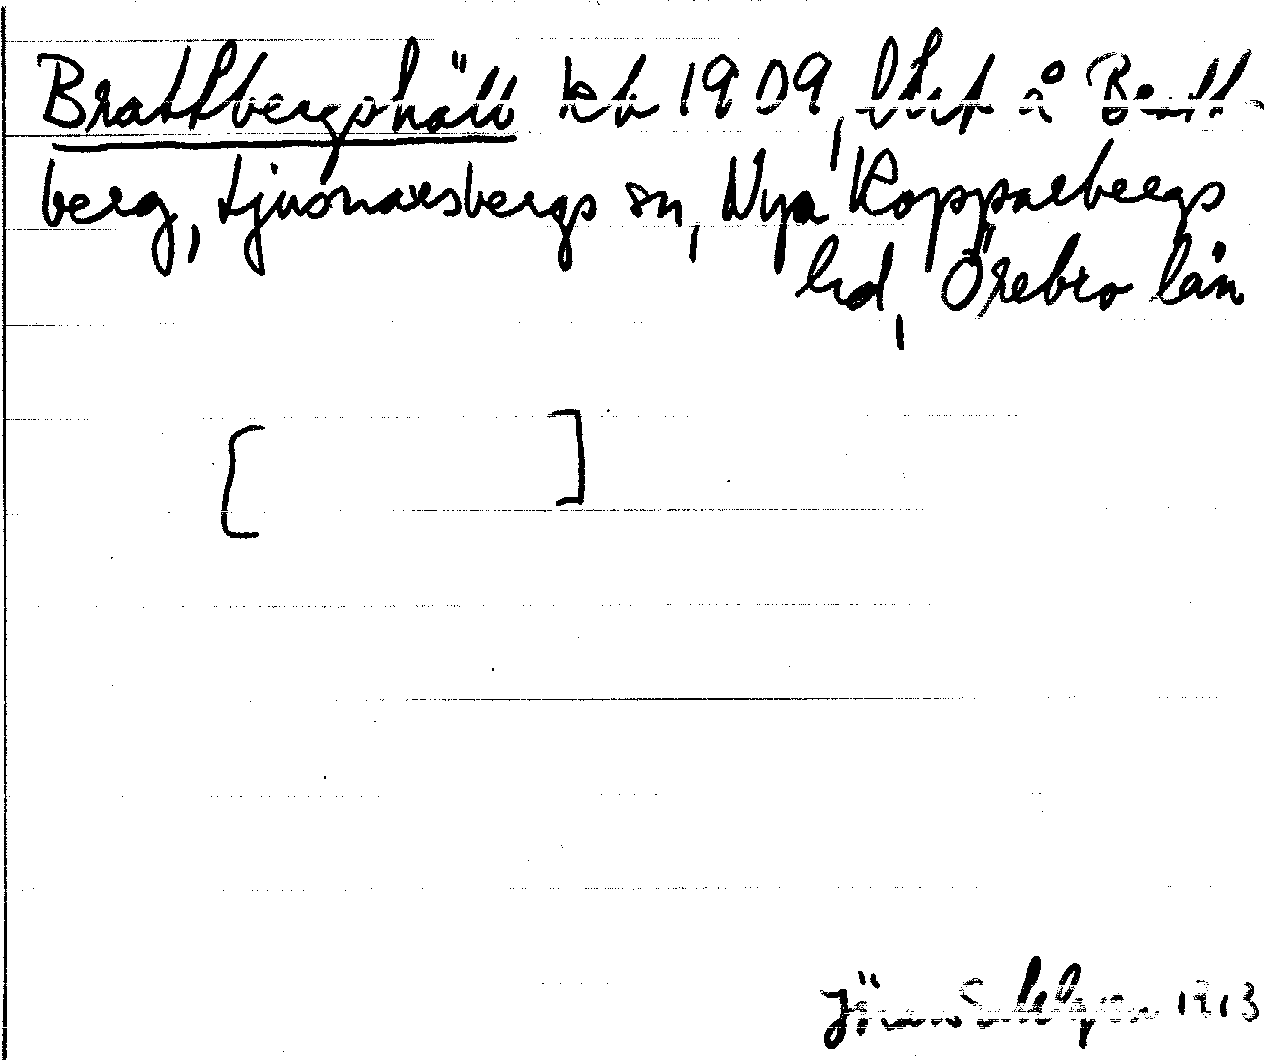 Brattbergshäll kb 1909, lht å Bratt-
berg, Ljusnarsbergs sn, Nya Kopparbergs
hd, Örebro län
[ ]
Jöran Sahlgren 1913